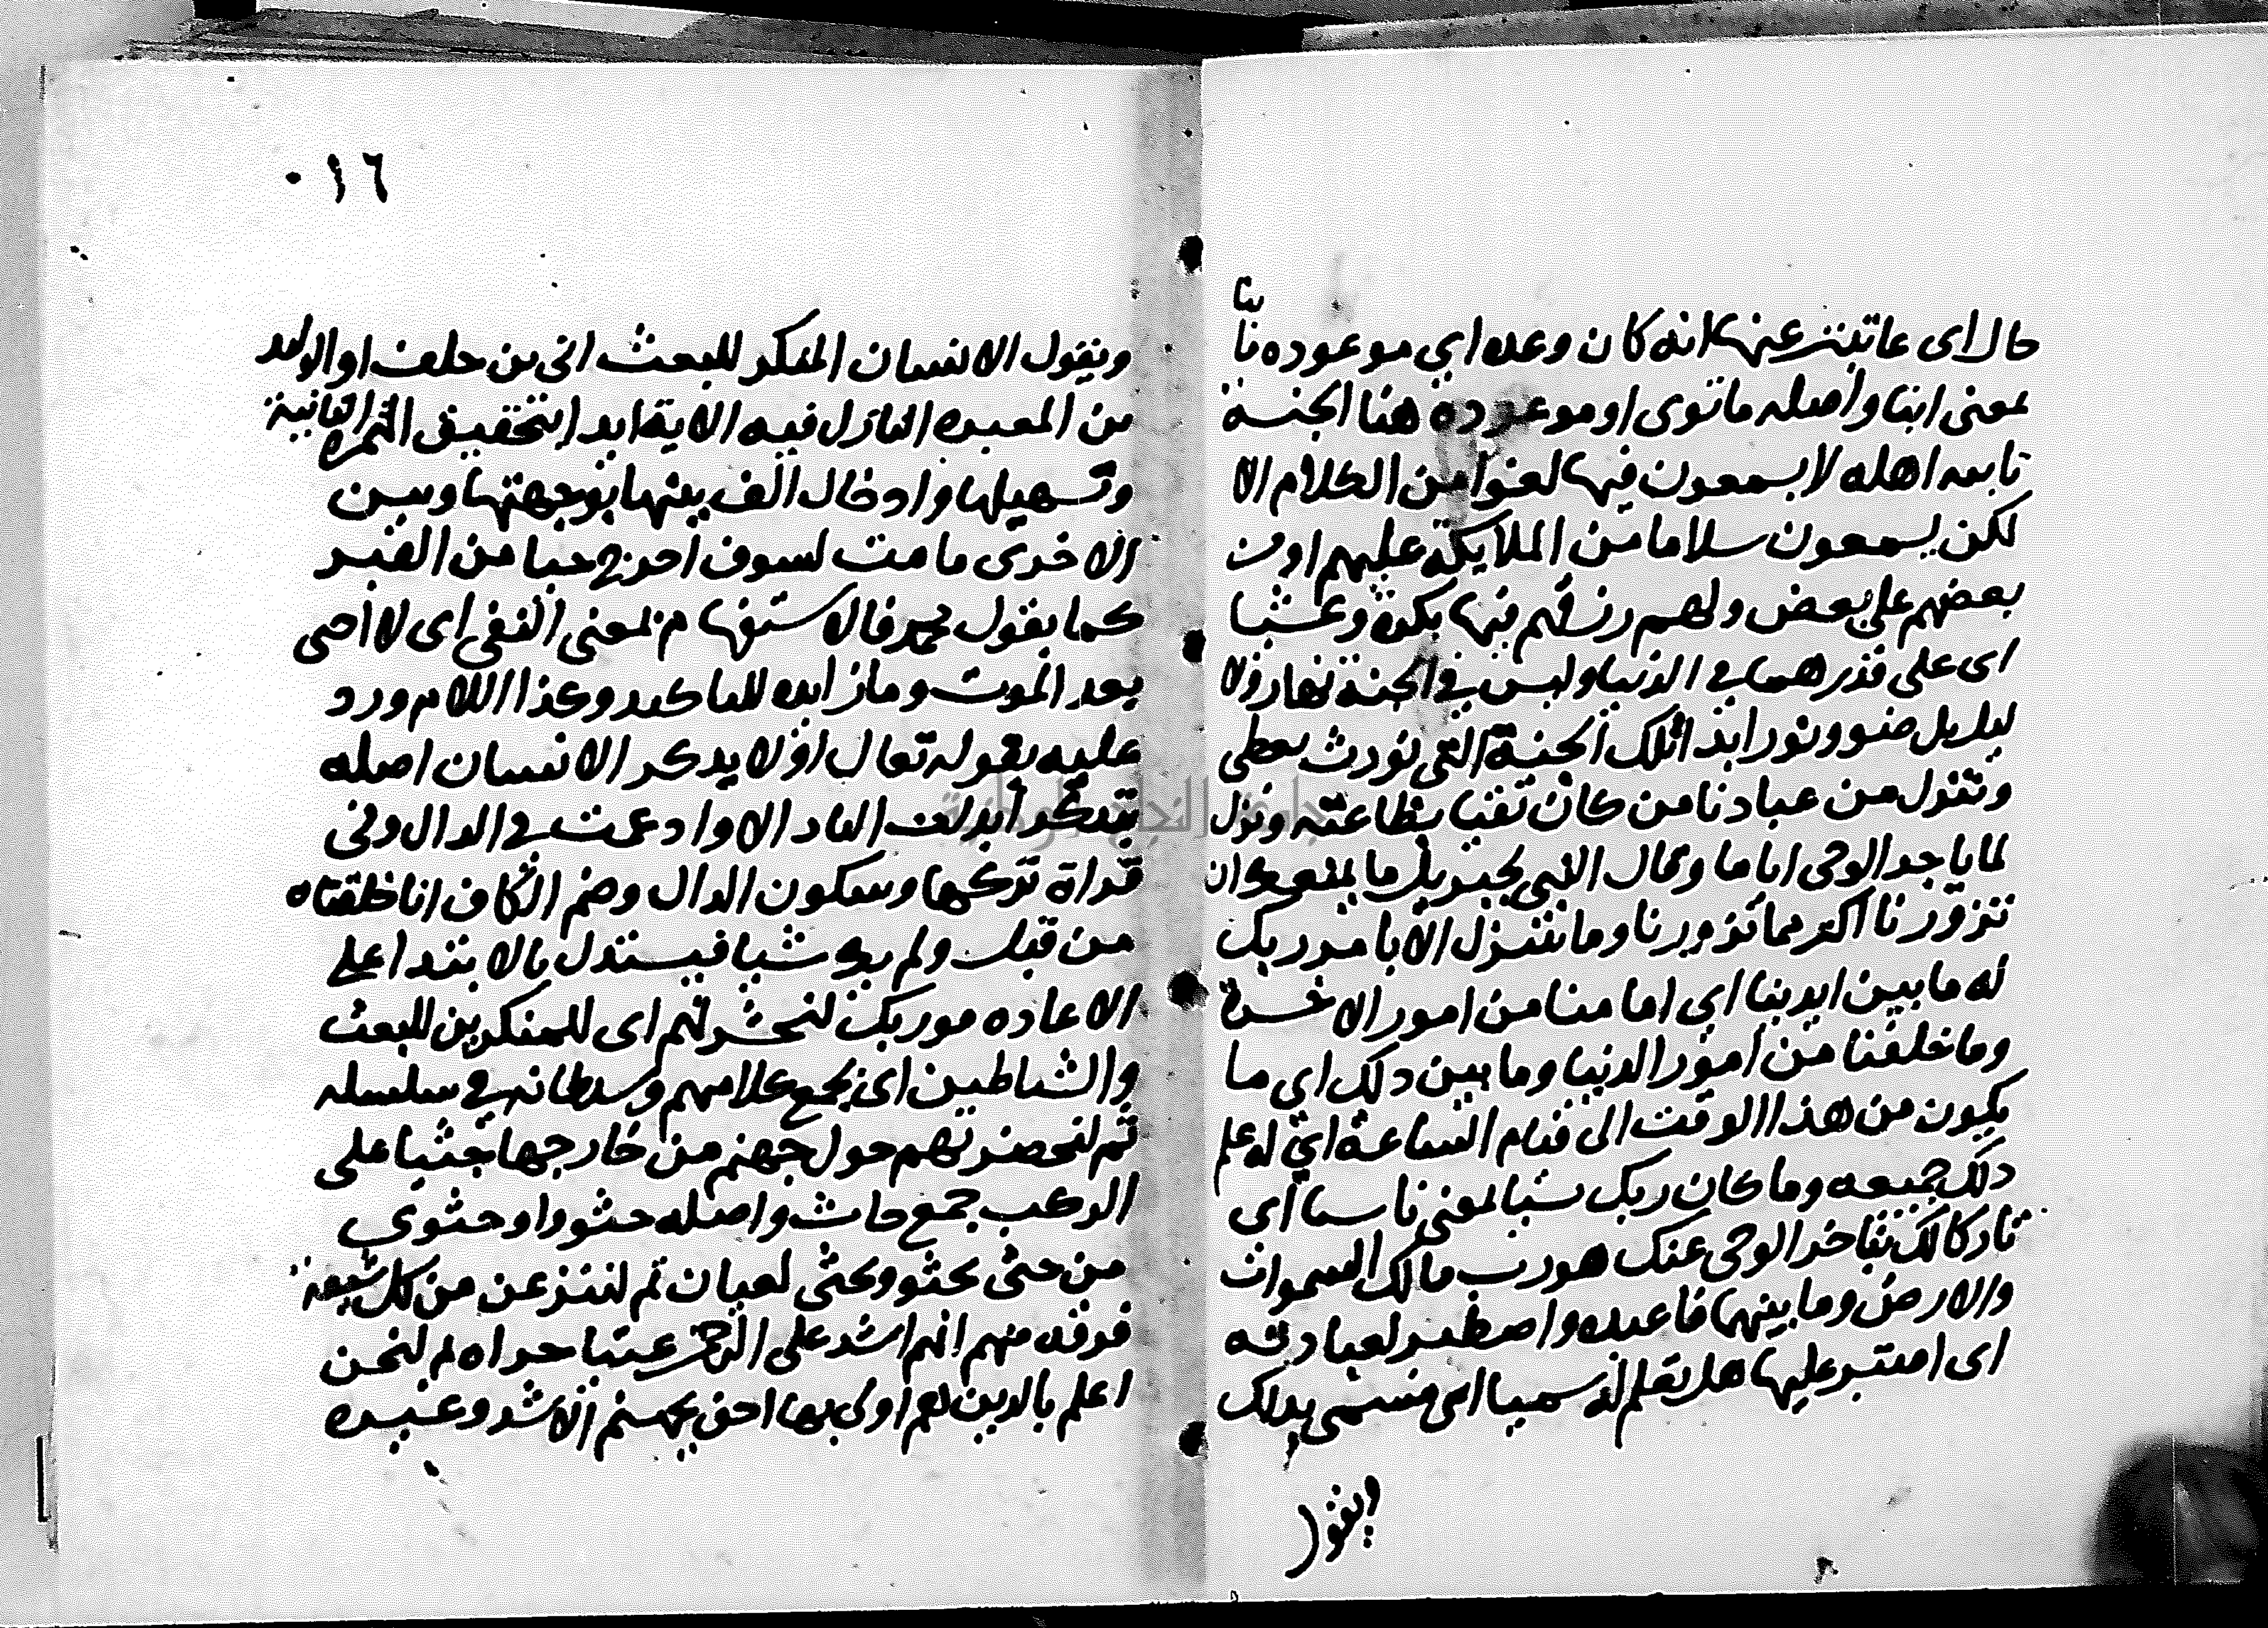 حال اى عاتبين عنها انه كان وعده اي موعوده ماتيا
بمعنى اتيا واصله ماتوى او موعوده هنا الجنة
ياتيه اهله لا يسمعون فيها لغوا من الكلام الا
لكن يسمعون سلاما من الملايكة عليهم او من
بعضهم على بعض ولهم رزقهم فيها بكرة وعشيا
اى على قدرهما في الدنيا وليس في الجنة نهار ولا
ليل بل ضو ونور ابدا تلك الجنة التي نورث نعطى
وننزل من عبادنا من كان تقيا بطاعته ونزل
لما تاخر الوحى اياما وقال النبي لجبريل ما يمنعك ان
تزورنا اكثر مما تزورنا وما نتنزل الا بامر ربك
له ما بين ايدينا اي امامنا من امور الاخرة
وما خلفنا من امور الدنيا وما بين ذلك اي ما
يكون من هذا الوقت الى قيام الساعة اي له علم
ذلك جميعه وما كان ربك نسيا بمعنى ناسيا اى
تاركا لك بتاخر الوحى عنك هو رب مالك السموات
والارض وما بينهما فاعبده واصطبر لعبادته
اى اصبر عليها هل تعلم له سميا اى مسمى بذلك
ويقول
٠١٦
ويقول الانسان المنكر للبعث ابى بن خلف او الوليد
بن المغيره النازل فيه الاية ايذا بتحقيق الهمزه الثانية
وتسهيلها وادخال الف بينها بوجهتها وبين
الاخرى ما مت لسوف اخرج حيا من القبر
كما يقول محمد فالاستفهام بمعنى النفي اى لا احى
بعد الموت وما زايده للتاكيد وكذا اللام ورد
عليه بقوله تعالى اولا يذكر الانسان اصله
يتذكر ابدلت التا دالا وادغمت في الدال وفى
قراة تركها وسكون الدال وضم الكاف انا خلقناه
من قبل ولم يك شيا فيستدل بالابتدا على
الاعاده فوربك لنحشرنهم اى للمنكرين للبعث
والشياطين اى نجمع كلا منهم وشيطانه في سلسله
ثم لنحضرنهم حول جهنم من خارجها جثيا على
الركب جمع جاث واصله جثوو او جثوى
من جثى يجثو ويجثى لغتان ثم لننزعن من كل شيعة
فرقه منهم ايهم اشد على الرحمن عتيا جراه ثم لنحن
اعلم بالذين هم اولى بها احق بجهنم الاشد وغيره